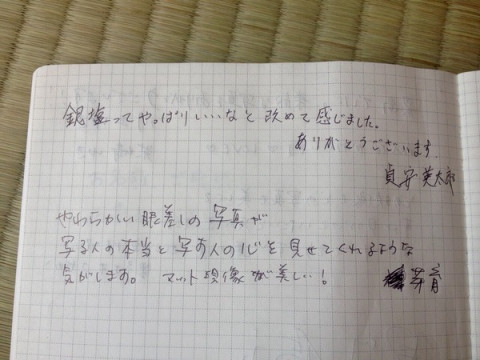 銀塩ってやっぱりいいなと改めて感じました。
ありがとうございます
貞安英太郎
やわらかい眼差しの写真が
写る人の本当と写す人の心を見せてくれるような
気がします。 マット現像が美しい!
芽育